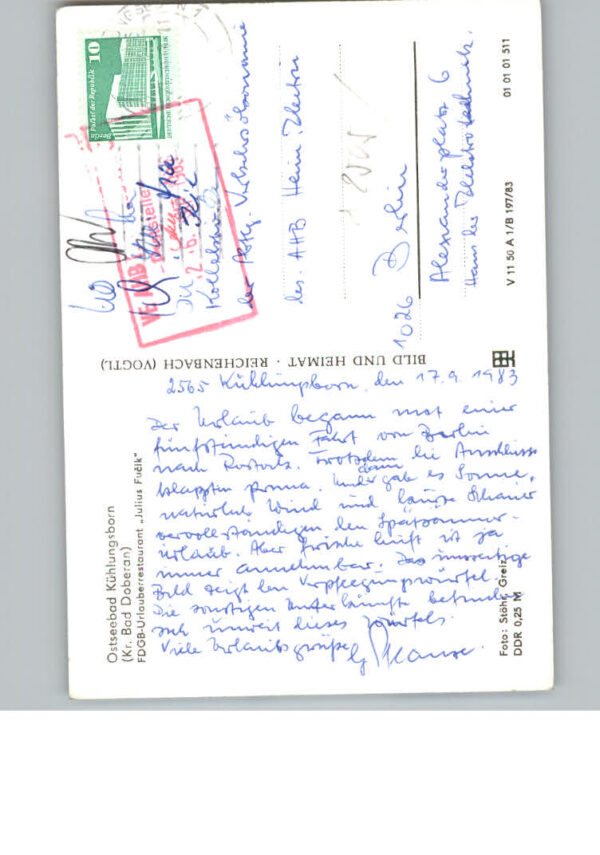 Ostseebad Kühlungsborn
(Kr. Bad Doberan)
FDGB-Urlauberrestaurant „Julius Fučík"
2565 Kühlungsborn, den 17.9.1983
Der Urlaub begann mit einer
fünfstündigen Fahrt von Berlin
nach Rostock. Trotzdem die Anschlüsse
klappten prima. dann gab es Sonne,
natürlich Wind und kurze Schauer
vervollständigen den Spätsommer-
urlaub. Aber frische Luft ist ja
immer annehmbar. Das umseitige
Bild zeigt den Verpflegungswürfel.
Die sonstigen Unterkünfte befinden
sich unweit dieses Würfels.
Viele Urlaubsgrüße
Foto: Stöhr, Greiz
DDR 0,25 M
BILD UND HEIMAT · REICHENBACH (VOGTL)
10
Berlin, Palast der Republik
Kollektiv
der Abtg.
des AHB Heim-Electric
1026 Berlin
Alexanderplatz 6
Haus der Elektrotechnik
V 11 50 A 1/B 197/83
01 01 01 511